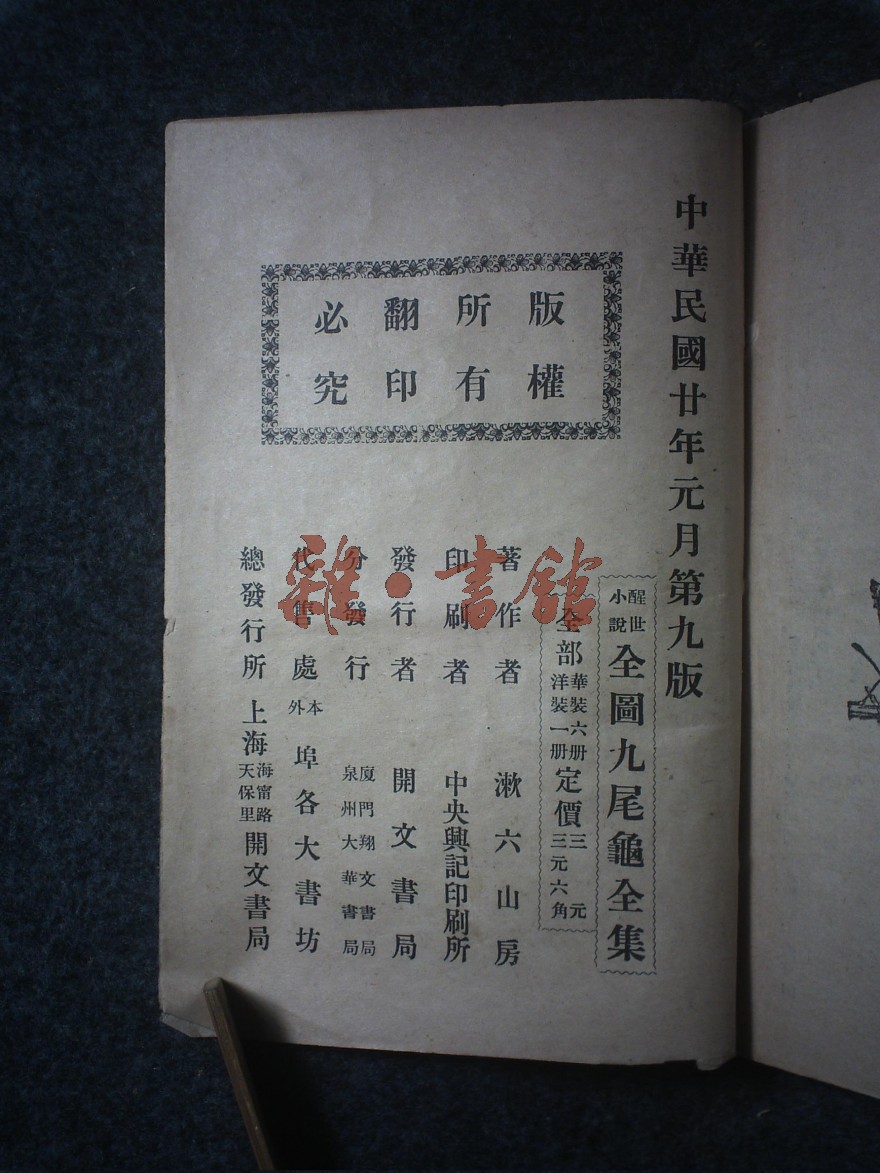 中華民國廿年元月第九版
版權
所有
翻印
必究
醒世
小說
全圖九尾龜全集
全部
華裝六册
洋裝一册
定價
三元
三元六角
著作者 漱六山房
印刷者 中央興記印刷所
發行者 開文書局
分發行
廈門翔文書局
泉州大華書局
代售處
本
外
埠各大書坊
總發行所 上海
海甯路
天保里
開文書局
雜·書館